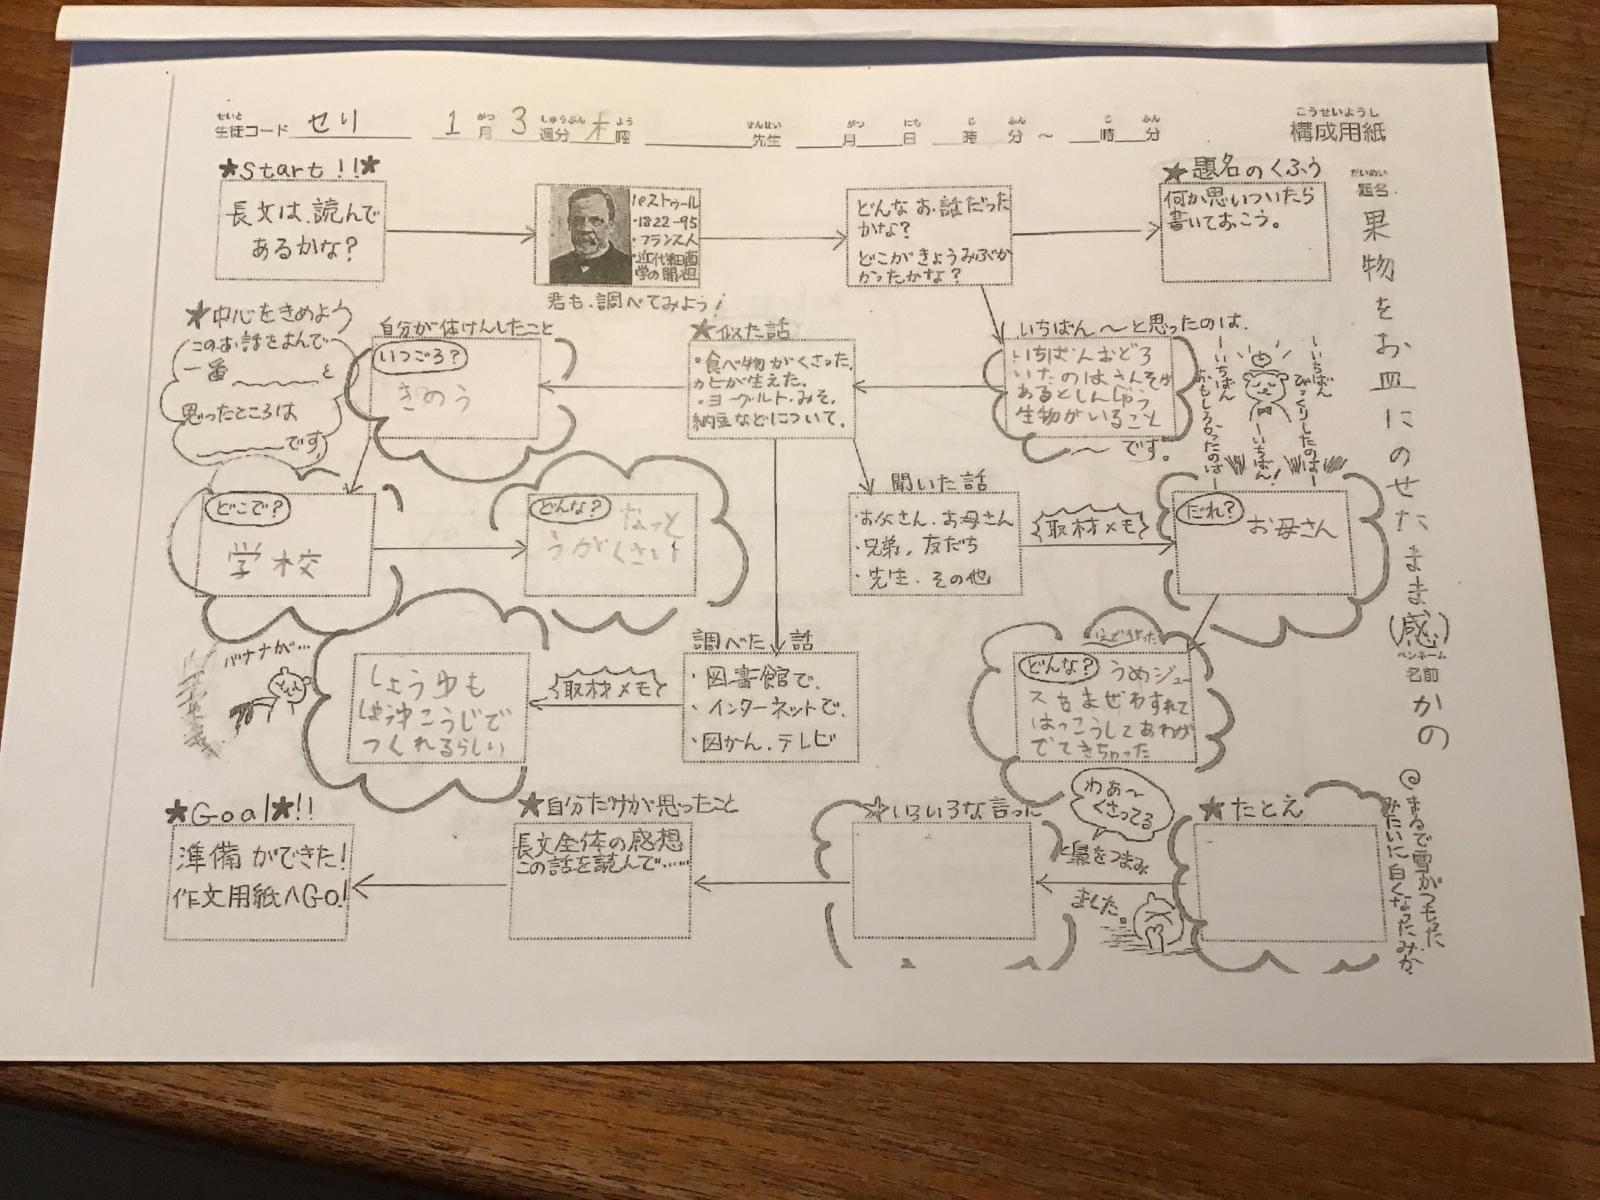 せいと
生徒コード セリ
1 がつ 月 3 しゅうぶん 週分 木 よう 曜
せんせい 先生
がつ 月 にち 日 じ 時 ふん 分 ～ じ 時 ふん 分
こうせいようし
構成用紙
だいめい
題名
果物をお皿にのせたまま(感)
ペンネーム
名前
かの
★Start!!★
長文は、読んで
あるかな?
パストゥール
・1822-95
・フランス人
・近代細菌
学の開祖
君も、調べてみよう!
どんなお話だった
かな?
どこがきょうみぶか
かったかな?
★題名のくふう
何か思いついたら
書いておこう。
★中心をきめよう
このお話をよんで
一番______と
思ったところは
______です
自分が体けんしたこと
いつごろ?
きのう
★似た話
・食べ物がくさった、
カビが生えた。
・ヨーグルト・みそ、
納豆などについて。
いちばん～と思ったのは、
いちばんおどろ
いたのはさんそが
あるとしんじゃう
生物がいること
～です。
ーいちばん
びっくりしたのはー
ーいちばん!
ーいちばん
おもしろかったのはー
どこで?
学校
どんな?
なっと
うがくさい
聞いた話
・お父さん、お母さん
・兄弟、友だち
・先生、その他
取材メモ
だれ?
お母さん
バナナが…
しょうゆも
しおこうじで
つくれるらしい
取材メモ
調べた話
・図書館で、
・インターネットで、
・図かん、テレビ
どんな?
うめジュー
スをまぜわすれて
はっこうしてあわが
でてきちゃった
★Goal★!!
準備ができた!
作文用紙へGo!
★自分だけが思ったこと
長文全体の感想
この話を読んで……
☆いろいろな言った
わあ～
くさってる
と鼻をつまみ
ました。
★たとえ
◎まるで雪がつもった
みたいに白くなったみか